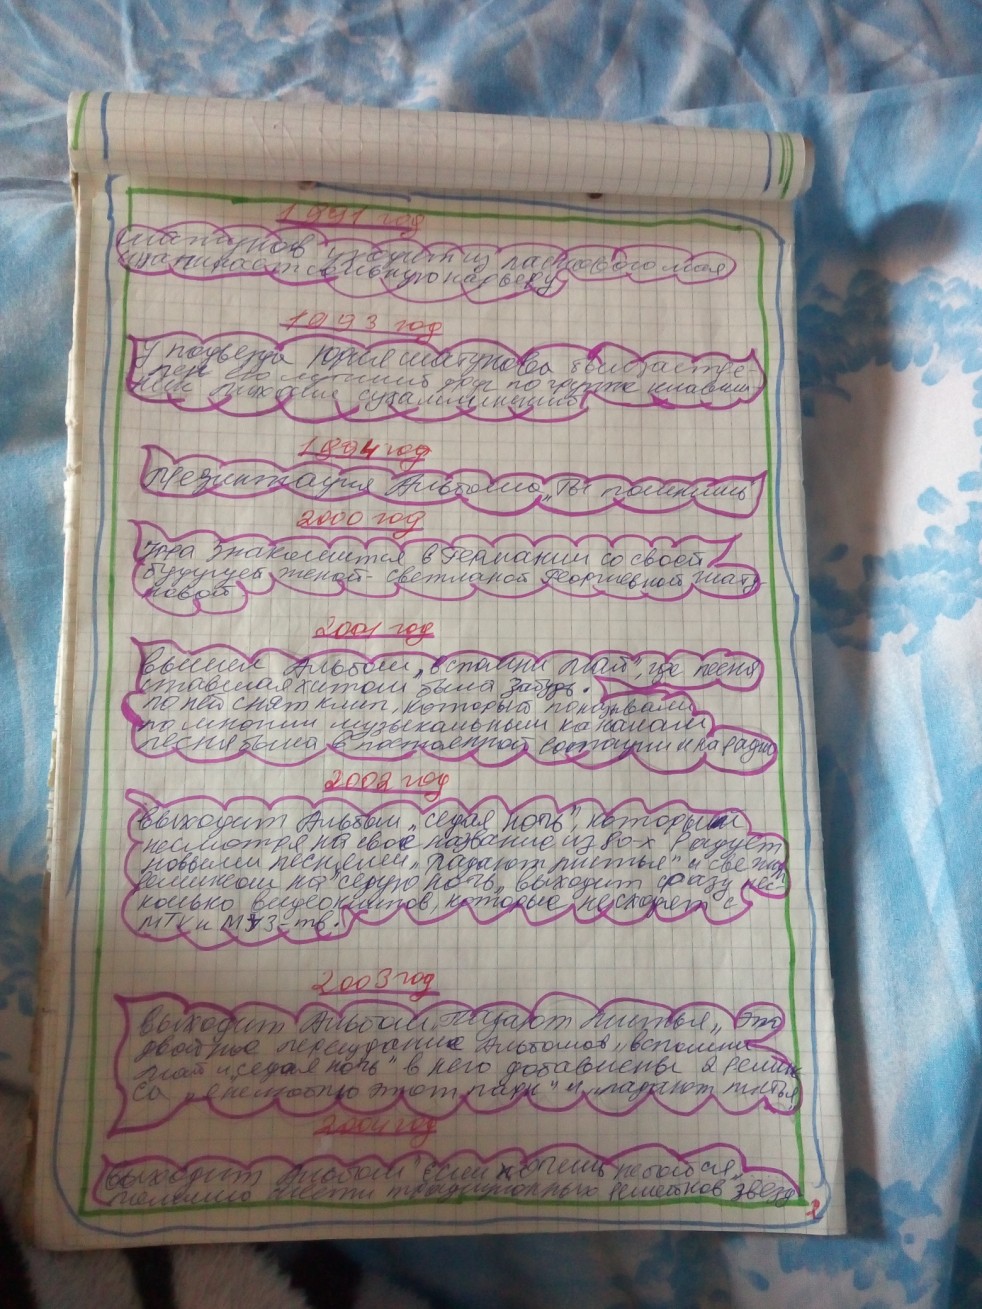 1991 год
Шатунов уходит из ласкового мая
и начинает сольную карьеру
1993 год
У подъезда Юрия Шатунова был застре-
лен его лучший друг по группе клавиш-
ник Михаил Сухамлинский
1994 год
Презинтация Альбома „Ты помнишь
2000 год
Юра знакомится в Германии со своей
будущей женой - светланой Георгиевной Шату
новой
2001 год
Вышел Альбом „вспомни май", где песня
ставшая хитом была Забудь.
на неё снят клип, который показывали
по многим музыкальным каналам
песня была в постоянной ротации и на радио
2002 год
Выходит Альбом „седая ночь", который
несмотря на своё название из 80-х радует
новыми песнями „Падают листья" и свежим
ремиксом на "седую ночь„ выходит сразу нес-
колько видеоклипов, которые не сходят с
МТК и МУЗ-тв.
2003 год
Выходит Альбом „Падают листья„ это
двойное переиздание Альбомов „вспомни
май и „седая ночь" в него добавлены 2 ремик
са „ненавижу этот парк" и „падают листья
2004 год
выходит Альбом "если хочешь не бойся„
помимо шести традиционных ремейков звезд
2